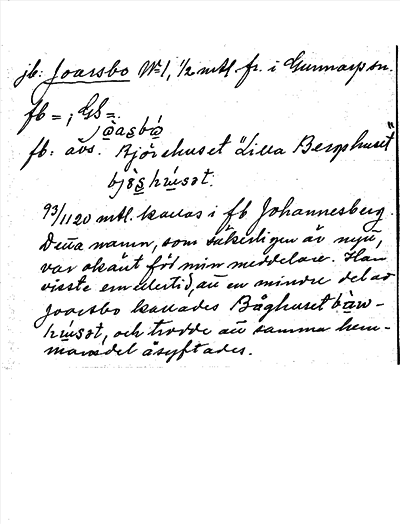 jb: Joarsbo No 1, 1/2 mtl. fr. i Gunnarp sn.
fb = ; GS =.
fb: avs. Björehuset "Lilla Berghuset"
93/1120 mtl. kallas i fb Johannesberg.
Detta namn, som säkerligen är nytt,
var okänt för min meddelare. Han
visste emellertid, att en mindre del av
Joarsbo kallades Båghuset
och trodde att samma hem-
mansdel åsyftades.